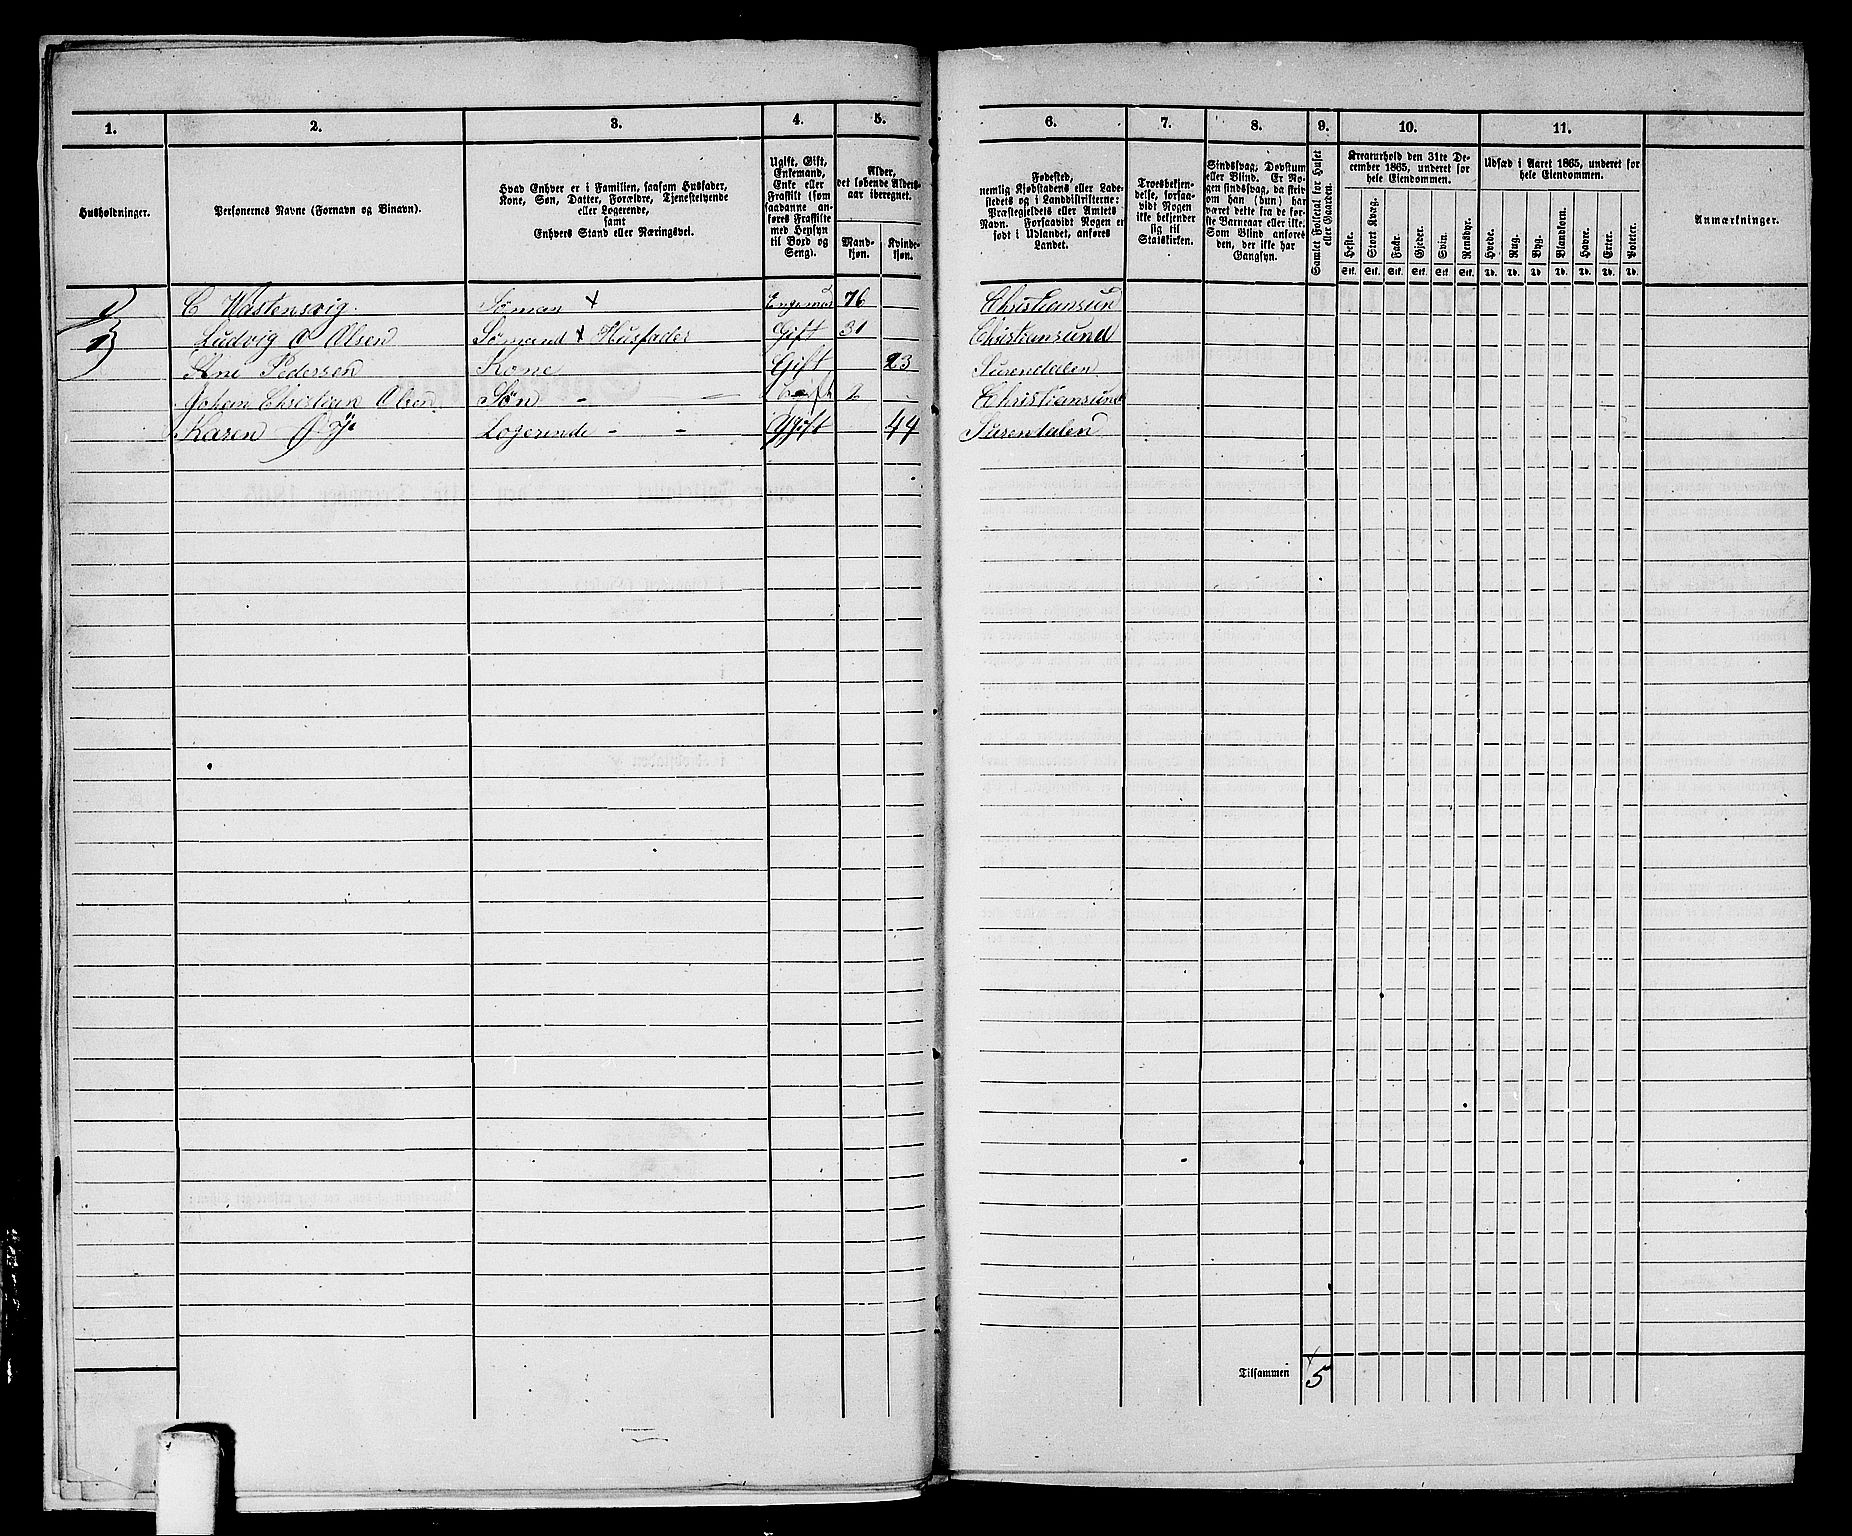 1. 2. 3. 4. 5. 6. 7. 8. 9. 10. 11.
Husholdninger.
Personernes Navne (Fornavn og Binavn).
Hvad Enhver er i Familien, saasom Husfader,
Kone, Søn, Datter, Forældre, Tjenestetyende
eller Logerende,
samt
Enhvers Stand eller Næringsvei.
Ugift, Gift,
Enkemand,
Enke eller
Fraskilt (som
saadanne an-
føres Fraskilte
med Hensyn
til Bord og
Seng).
Alder,
det løbende Alders-
aar iberegnet.
Mand-
kjøn.
Kvinde-
kjøn.
Fødested,
nemlig Kjøbstadens eller Lade-
stedets og i Landdistrikterne:
Præstegjeldets eller Amtets
Navn. Forsaavidt Nogen er
født i Udlandet, anføres
Landet.
Troesbekjen-
delse, forsaa-
vidt Nogen
ikke bekjender
sig til
Statskirken.
Sindssvag, Døvstum
eller Blind. Er No-
gen sindssvag, da skri-
ves om han (hun) har
været dette fra de før-
ste Barneaar eller ikke.
Som Blind anføres
den, der ikke har
Gangsyn.
Samlet Folketal for Huset
eller Gaarden.
Kreaturhold den 31te De-
cember 1865, underet for
hele Eiendommen.
Heste. Stort Kvæg. Faar. Gjeder. Svin. Rensdyr.
Stk. Stk. Stk. Stk. Stk. Stk.
Udsæd i Aaret 1865, underet for
hele Eiendommen.
Hvede. Rug. Byg. Blandkorn. Havre. Erter. Poteter.
Td. Td. Td. Td. Td. Td. Td.
Anmærkninger.
C Wastensvig. Søman + 76 Christiansund
Ludvig O Olsen Sømand + Husfader Gift 31 Christiansund
Ane Pedersen Kone Gift 23 Surendalen
Johan Christian Olsen Søn - - 2 Christiansund
Karen Logerende - - Gift 44 Surendalen
Tilsammen 5